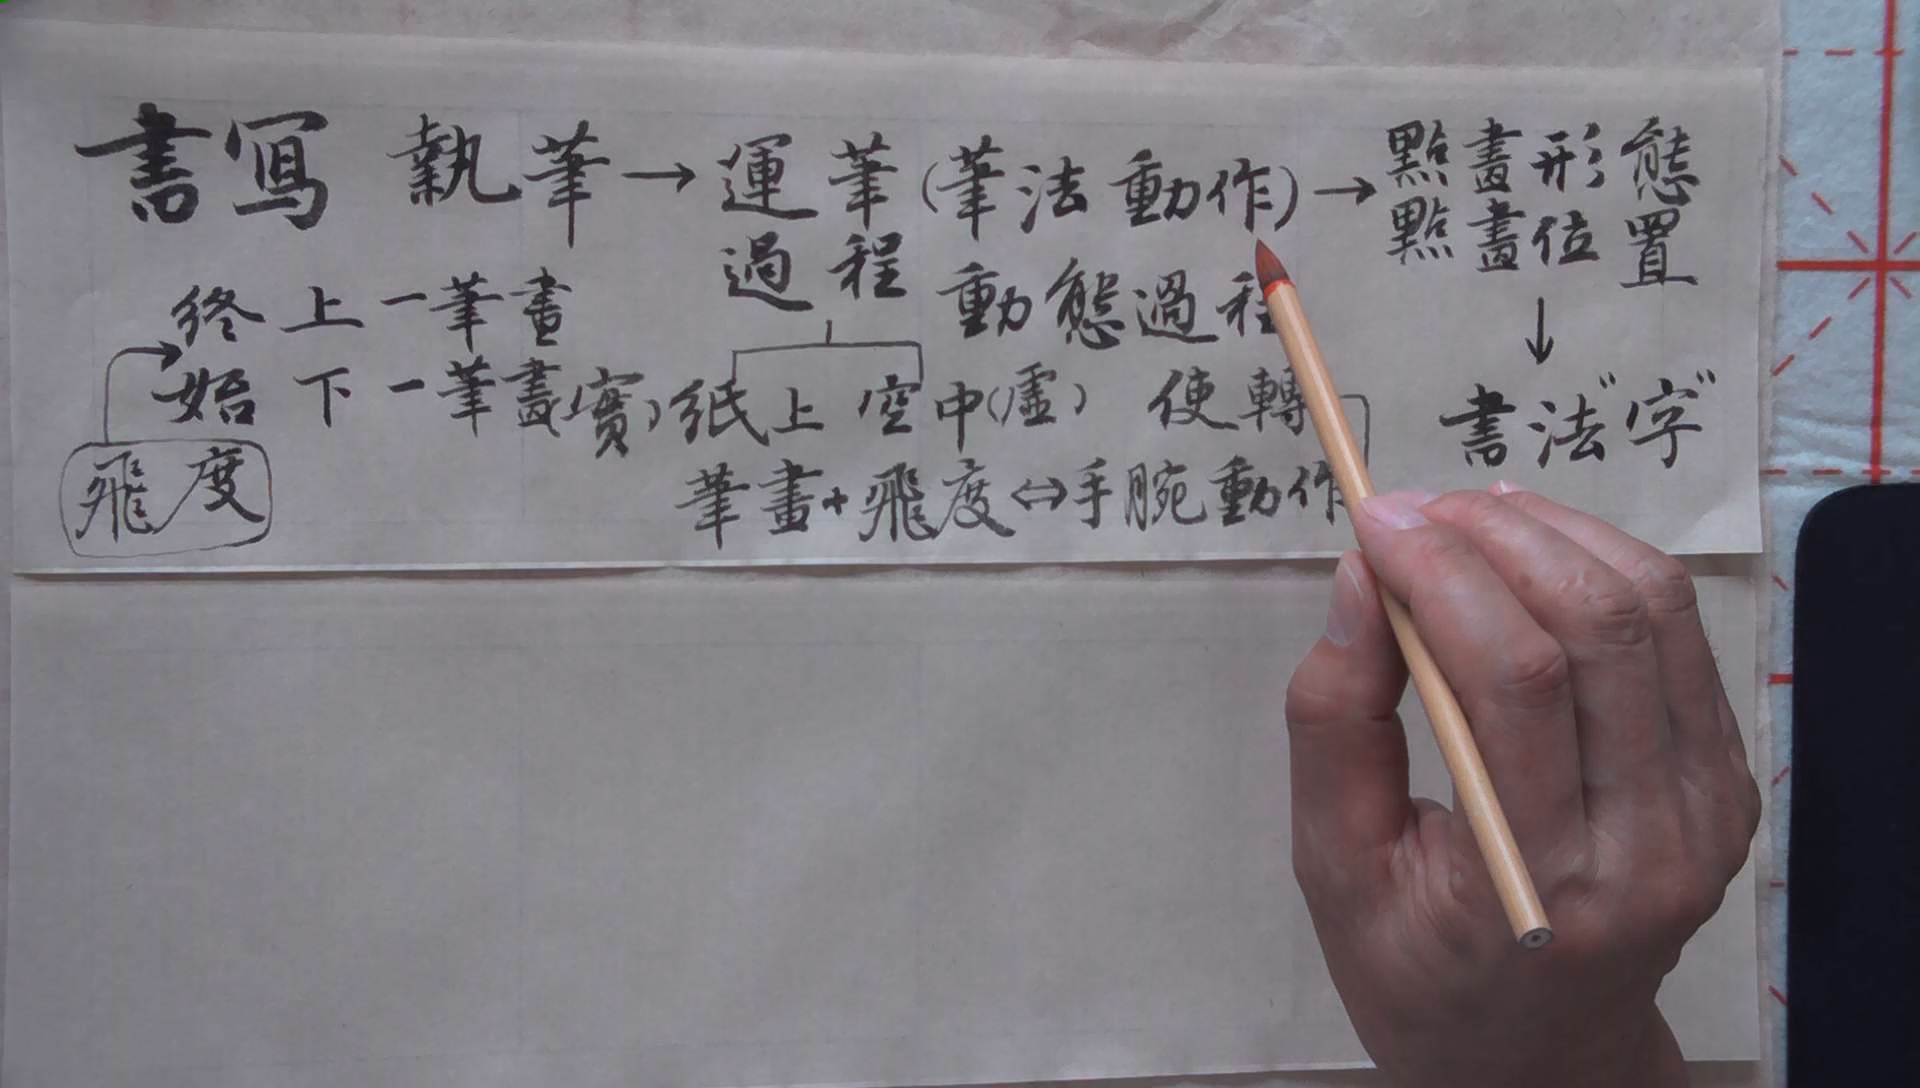 書寫 執筆→運筆(筆法動作)→點畫形態
過程 點畫位置
終 上一筆畫 動態過程 ↓
始 下一筆畫(實)紙上 空中(虛) 使轉 書法"字"
飛度 筆畫+飛度⇔手腕動作